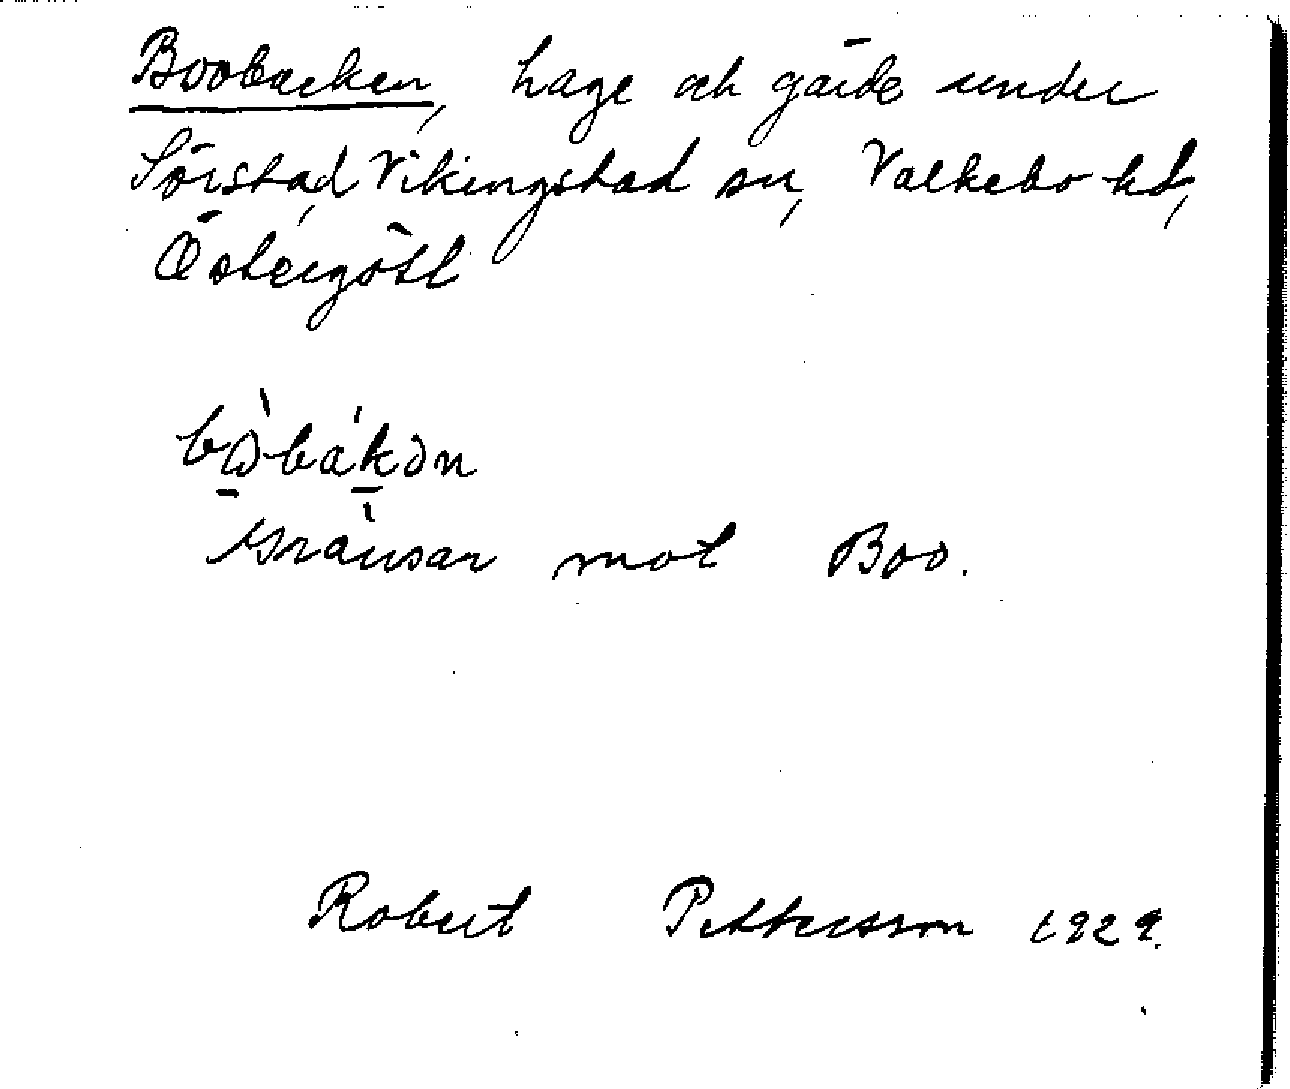 Boobacken, hage och gärde under
Sörstad, Vikingstad sn, Valkebo hd,
Östergötl
bὼbákən
Gränsar mot Boo.
Robert Pettersson 1929.